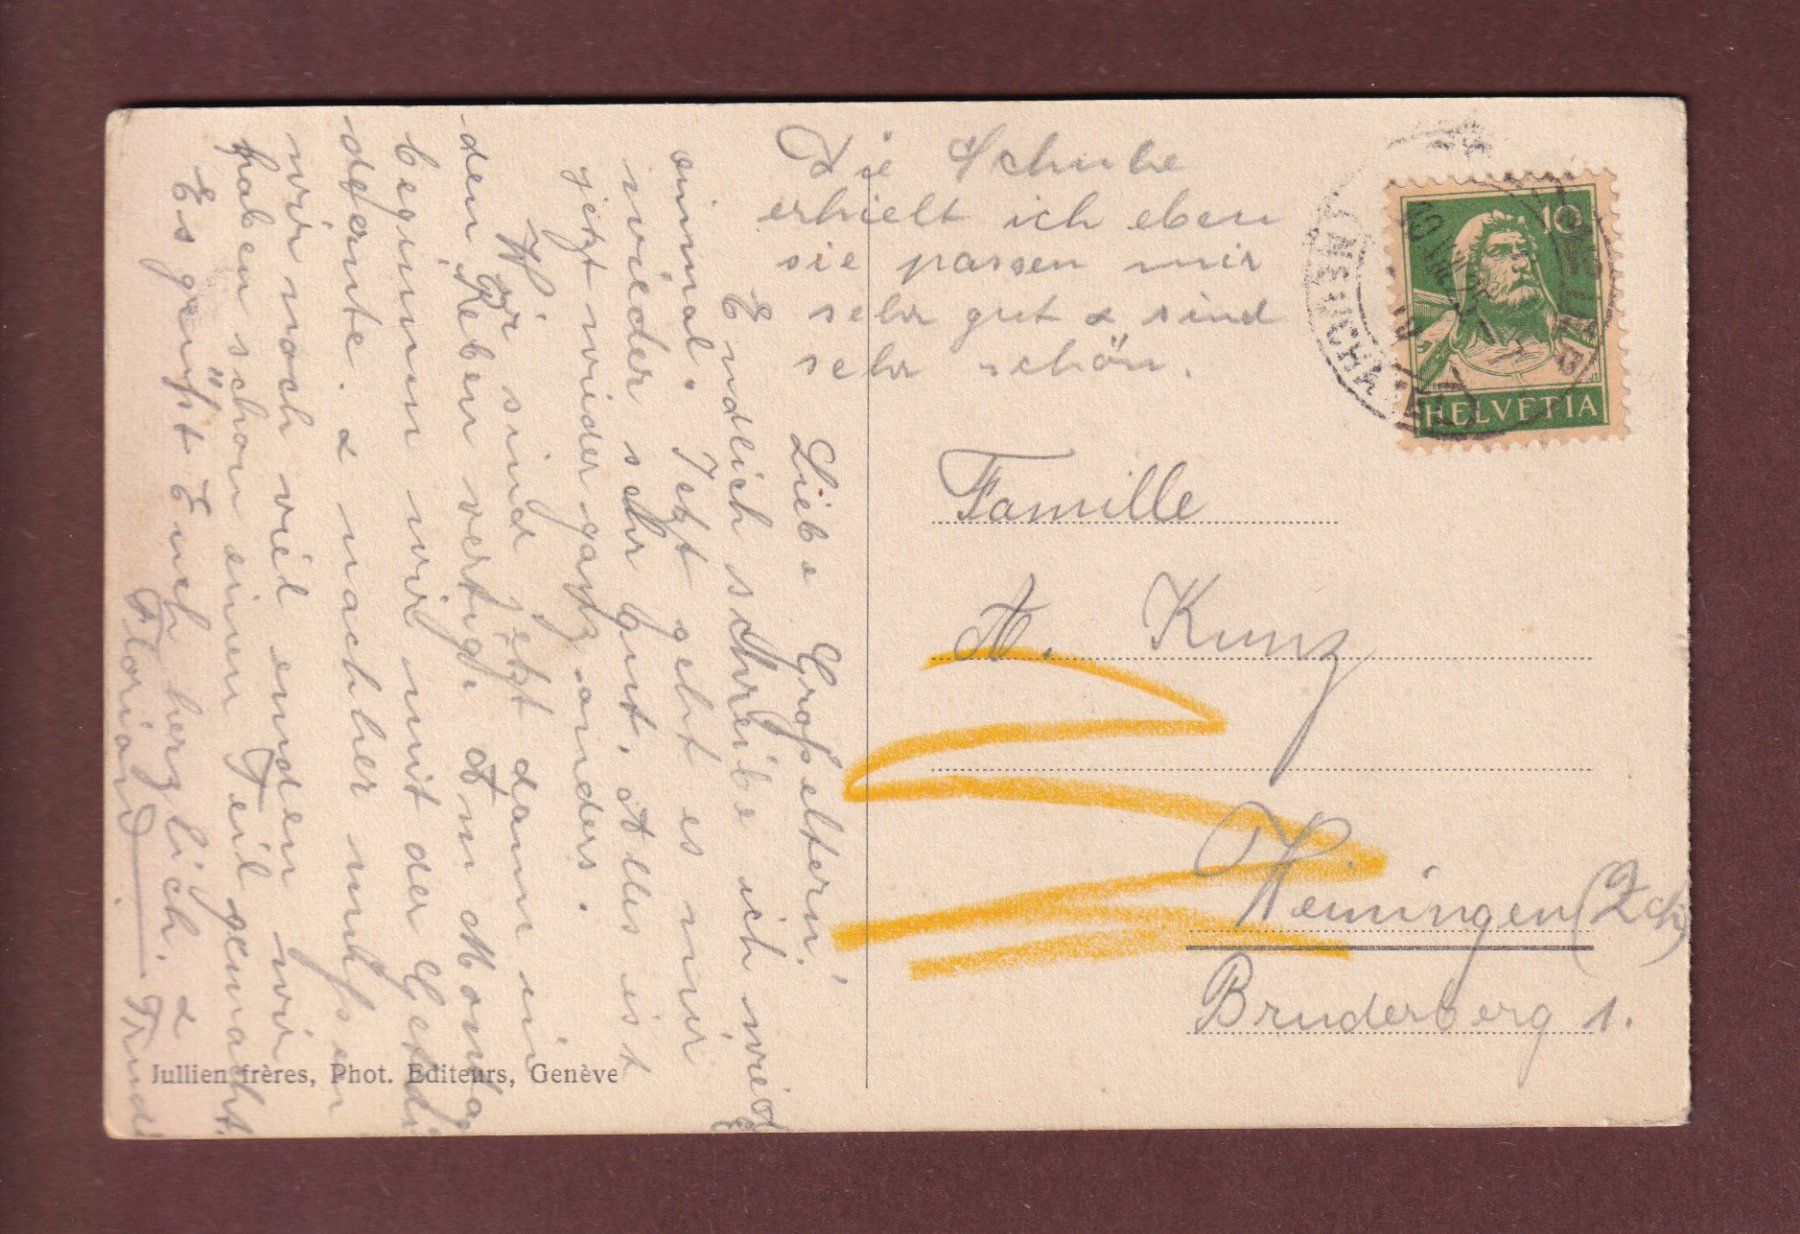 Die Schuhe
erhielt ich eben
sie passen mir
sehr gut & sind
sehr schön.
Liebe Grosseltern!
Endlich schreibe ich wied
einmal. Jetzt geht es mir
wieder sehr gut. Alles ist
jetzt wider ganz anders.
Wir sind jetzt dann in
den Reben vertig. Am Montag
beginnen wir mit der Getrei
deernte. & nachher müssen
wir noch viel emden wir
haben schon einen Teil gemacht.
Es grüsst Euch herzlich. &
Floriand Trudi
HELVETIA
10
Famille
A. Kunz
Weiningen (Zch)
Bruderberg 1.
Jullien frères, Phot. Editeurs, Genève